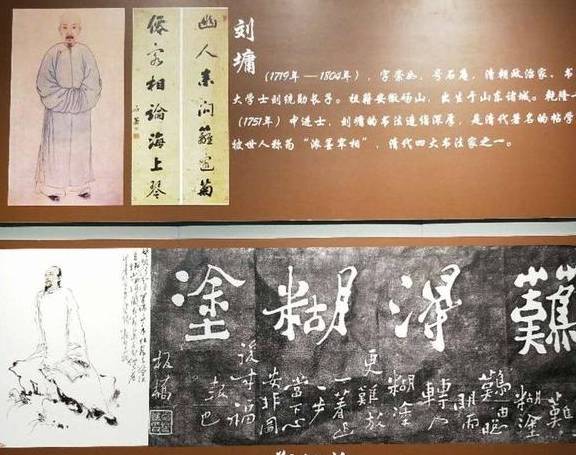 幽人来问籬邊菊
客相論海上琴
刘墉
(1719年—1804年),字崇如,号石庵,清朝政治家、书
大学士刘统勋长子。祖籍安徽砀山,出生于山东诸城。乾隆十
(1751年)中进士,刘墉的书法造诣深厚,是清代著名的帖学
被世人称为“浓墨宰相”,清代四大书法家之一。
難得糊塗
難
糊塗
難由聰
明而
轉入
糊塗
更難放
一著退
一步
當下心
安非圖
後來福
報也
板橋